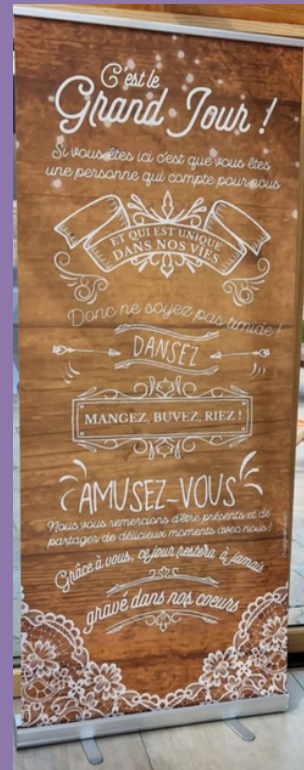 C'est le
Grand Jour !
Si vous êtes ici c'est que vous êtes
une personne qui compte pour nous
ET QUI EST UNIQUE
DANS NOS VIES
Donc ne soyez pas timide !
DANSEZ
MANGEZ, BUVEZ, RIEZ !
AMUSEZ-VOUS
Nous vous remercions d'être présents et de
partager de délicieux moments avec nous !
Grâce à vous, ce jour restera à jamais
gravé dans nos coeurs